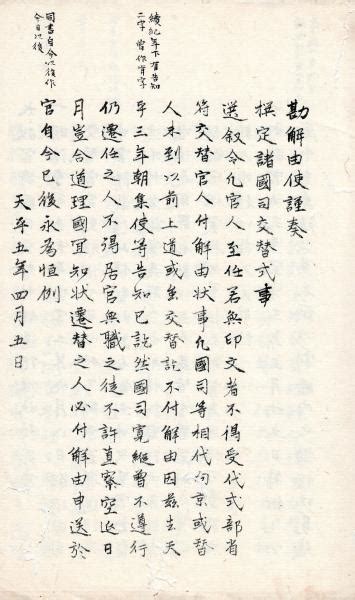 勘解由使謹奏
撰定諸國司交替式事
選叙令凡官人至任若無印文者不得受代式部省
符交替官人付解由状事凡國司等相代向京或替
人未到以前上道或雖交替訖不付解由因茲去天
平三年朝集使等告知已訖然國司寛縦曽不遵行
仍遷任之人不得居官無職之徒不許直寮空延日
月豈合道理國宜知状遷替之人必付解由申送於
官自今已後永為恒例
天平五年四月五日
續紀年下有告知
二字曽作肯字
同書自今以後作
今日以後